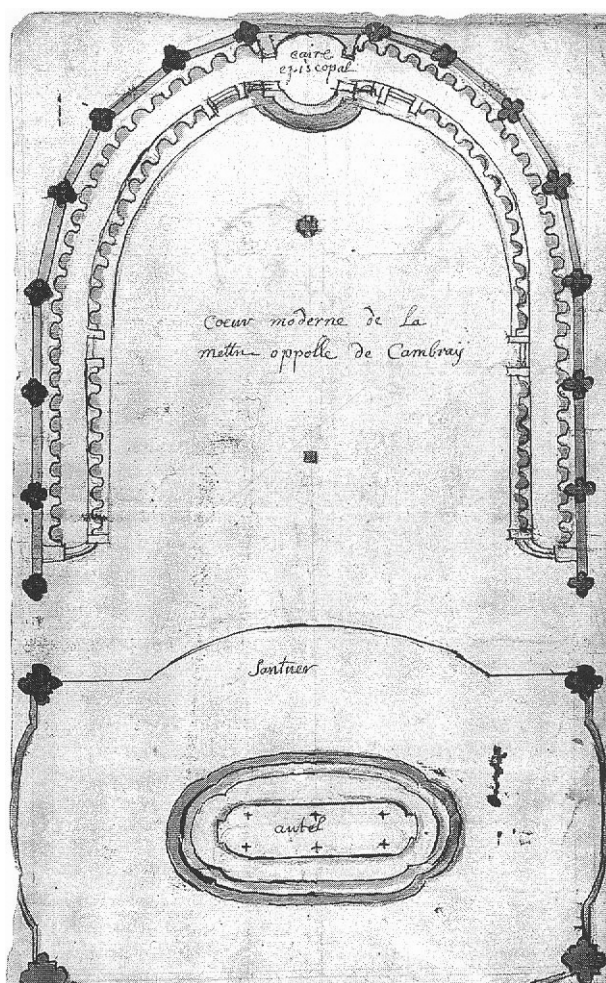 caire
episcopal
Coeur moderne de la
mettre oppolle de Cambray
Santuer
autel